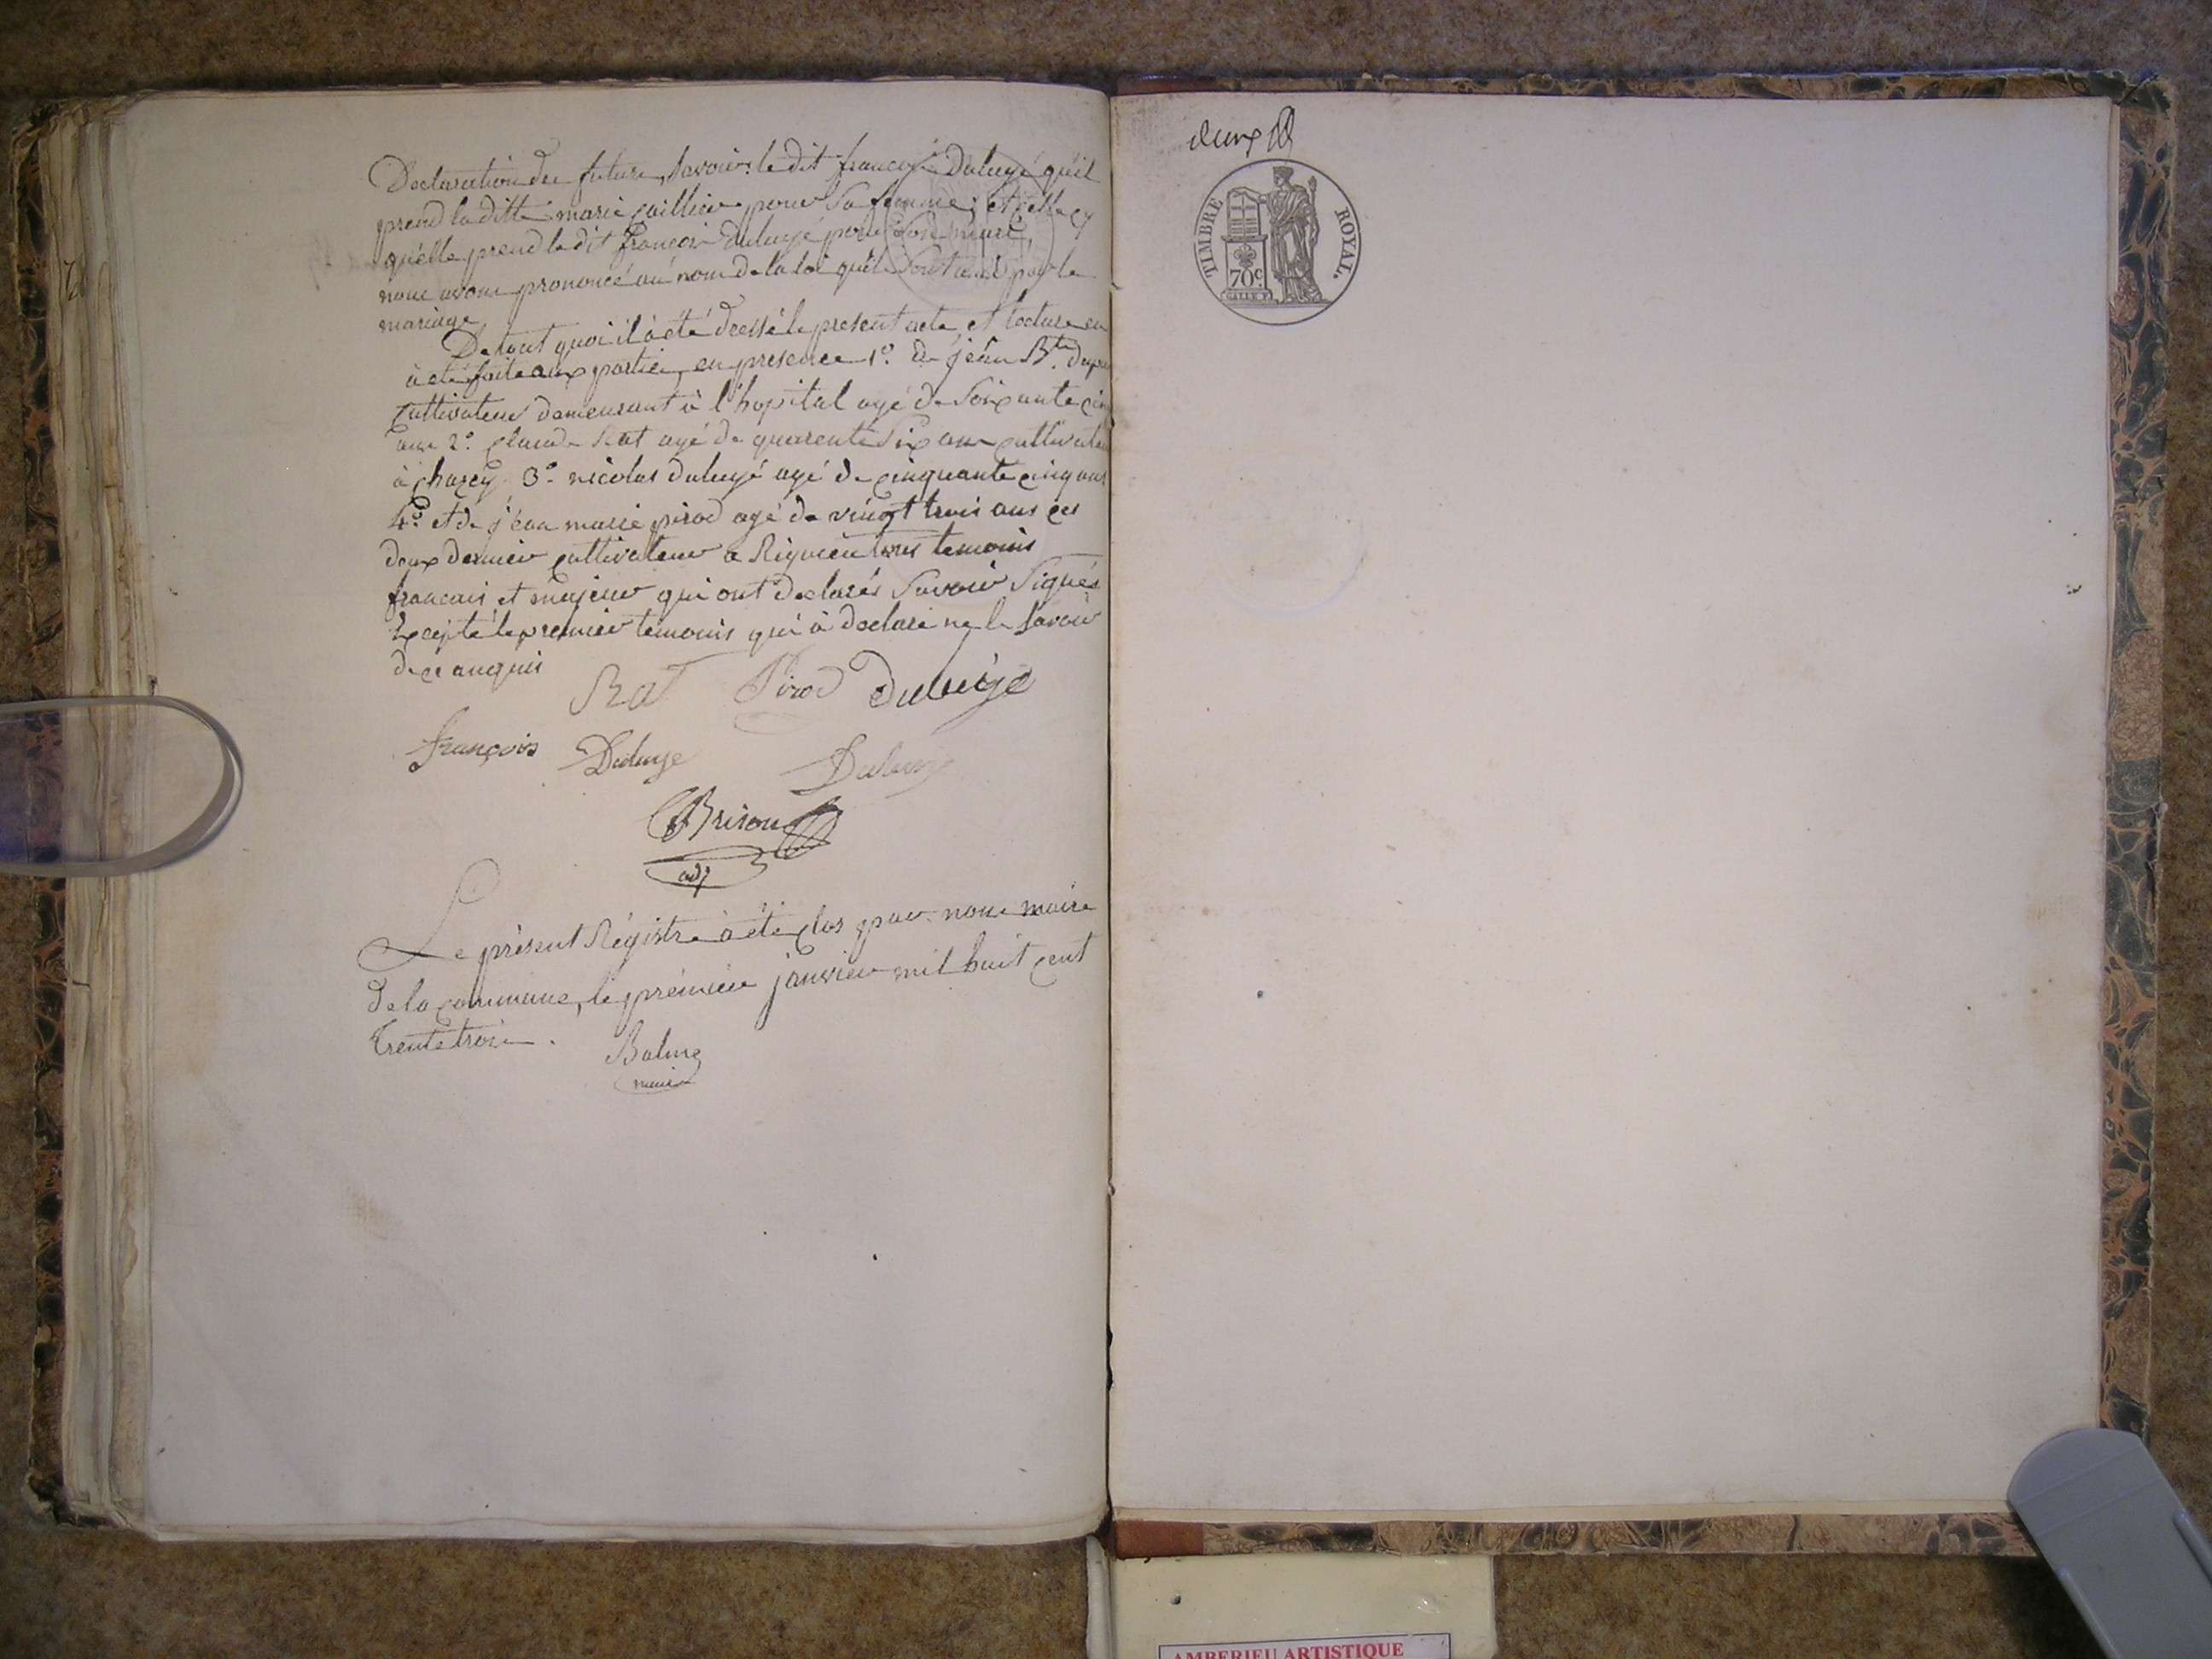 Declaration des futurs, Savoir: le dit françois Daluyé qu'il
prend la ditte marie caillier pour Sa femme; et celle cy
qu'elle prend le dit françois Daluyé pour Son mari,
nous avons prononcé au nom de la loi qu'ils Sont unis par le
mariage
De tout quoi il à été dressé le present acte et lecture en
à été faite aux parties, en presence 1º. de jean Bte.
cultivateur demeurant à l'hopital agé de Soixante cinq
ans 2º. claude Rat agé de quarente Six ans cultivateur
à chazey. 3º. nicolas daluyé agé de cinquante cinq ans
4º. et de jean marie pirod agé de vingt trois ans ces
deux dernier cultivateur a Rignieu tous temouis
francais et majeur qui ont declarés Savoir Signés
Excepté le premier temouis qui à declaré ne le Savoir
de ce anquis
Rat Pirod Daluyé
françois Daluye Daluye
Brison
adj
Le présent Régistre à été clos par nous maire
de la commune, le premier janvier mil huit cent
trente trois.
Balme
maire
deux
TIMBRE ROYAL.
70c.
AMBERIEU ARTISTIQUE